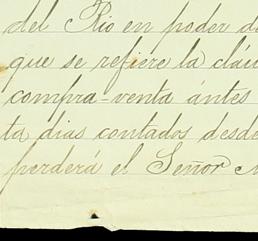 del Rio en poder d
que se refiere la cláu
compra-venta ántes
ta dias contados desde
perderá el Señor